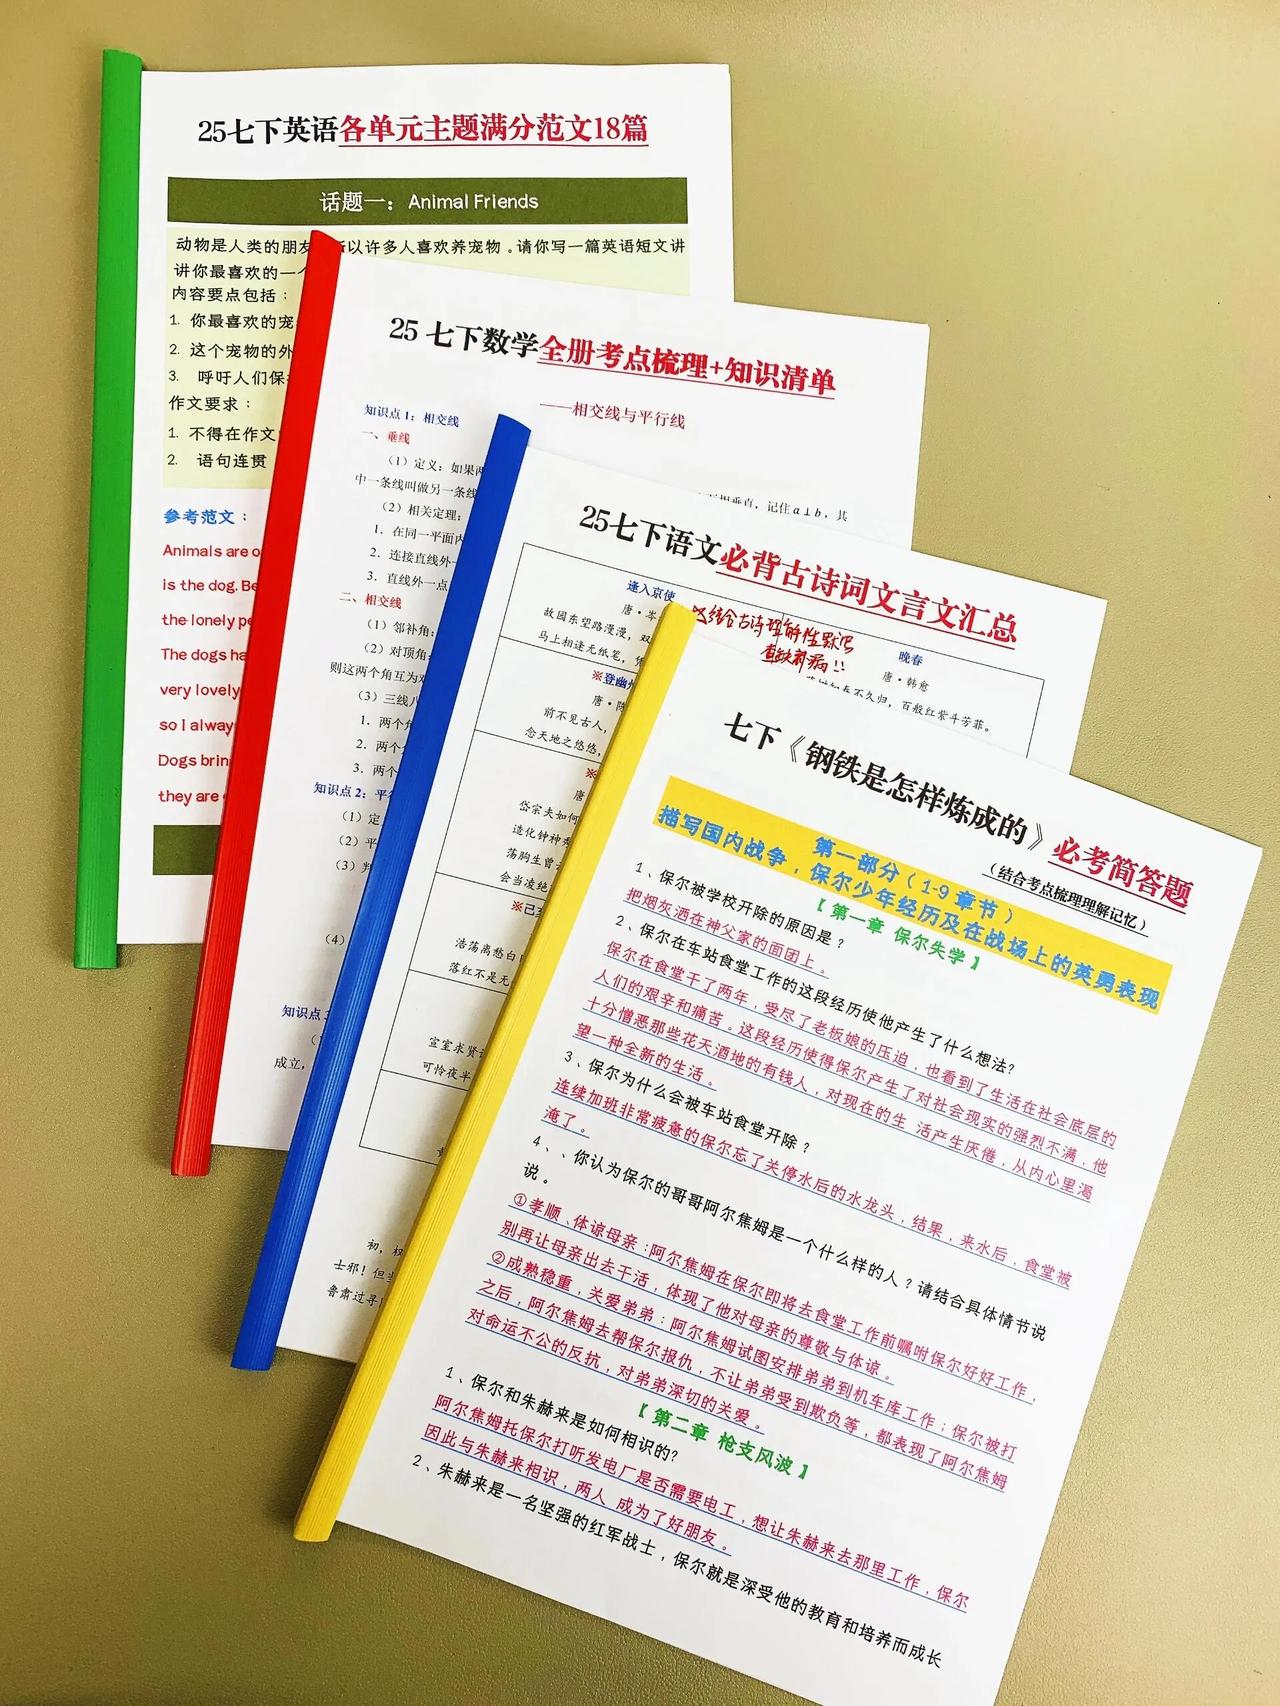 25七下英语各单元主题满分范文18篇
话题一：Animal Friends
动物是人类的朋友 以许多人喜欢养宠物。请你写一篇英语短文讲
讲你最喜欢的一
内容要点包括：
1. 你最喜欢的宠
2. 这个宠物的外
3. 呼吁人们保
作文要求：
1. 不得在作文
2. 语句连贯
参考范文：
Animals are
is the dog.
the lonely
The dogs
very lovely
so I always
Dogs
they are
25 七下数学全册考点梳理+知识清单
——相交线与平行线
知识点1：相交线
一、垂线
（1）定义：如果两
相垂直，记住a⊥b，其
中一条线叫做另一条线
（2）相关定理：
1. 在同一平面内
2. 连接直线外一
3. 直线外一点
二、相交线
（1）邻补角：
（2）对顶角：
则这两个角互为对
（3）三线八
1. 两个角
2. 两个
3. 两个
知识点2：平
（1）定
（2）平
（3）判
（4）
知识点3
成立，
25七下语文必背古诗词文言文汇总
结合古诗理解性默写
查缺补漏!!
逢入京使
唐·岑
故园东望路漫漫，双
马上相逢无纸笔，凭
※登幽州
唐·陈
前不见古人，
念天地之悠悠，
唐
岱宗夫如何
造化钟神秀
荡胸生曾
会当凌绝
※己亥
浩荡离愁白日
落红不是无
宣室求贤访
可怜夜半
晚春
唐·韩愈
草树知春不久归，百般红紫斗芳菲。
初，权
士邪！但当
鲁肃过寻
七下《钢铁是怎样炼成的》必考简答题
（结合考点梳理理解记忆）
第一部分（1-9章节）
描写国内战争，保尔少年经历及在战场上的英勇表现
【第一章 保尔失学】
1、保尔被学校开除的原因是？
把烟灰洒在神父家的面团上。
2、保尔在车站食堂工作的这段经历使他产生了什么想法？
保尔在食堂干了两年，受尽了老板娘的压迫，也看到了生活在社会底层的
人们的艰辛和痛苦。这段经历使得保尔产生了对社会现实的强烈不满，他
十分憎恶那些花天酒地的有钱人，对现在的生 活产生厌倦，从内心里渴
望一种全新的生活。
3、保尔为什么会被车站食堂开除？
连续加班非常疲惫的保尔忘了关停水后的水龙头，结果，来水后，食堂被
淹了。
4、、你认为保尔的哥哥阿尔焦姆是一个什么样的人？请结合具体情节说
说。
①孝顺、体谅母亲：阿尔焦姆在保尔即将去食堂工作前嘱咐保尔好好工作，
别再让母亲出去干活，体现了他对母亲的尊敬与体谅。
②成熟稳重，关爱弟弟：阿尔焦姆试图安排弟弟到机车库工作；保尔被打
之后，阿尔焦姆去帮保尔报仇，不让弟弟受到欺负等，都表现了阿尔焦姆
对命运不公的反抗，对弟弟深切的关爱。
【第二章 枪支风波】
1、保尔和朱赫来是如何相识的？
阿尔焦姆托保尔打听发电厂是否需要电工，想让朱赫来去那里工作，保尔
因此与朱赫来相识，两人 成为了好朋友。
2、朱赫来是一名坚强的红军战士，保尔就是深受他的教育和培养而成长